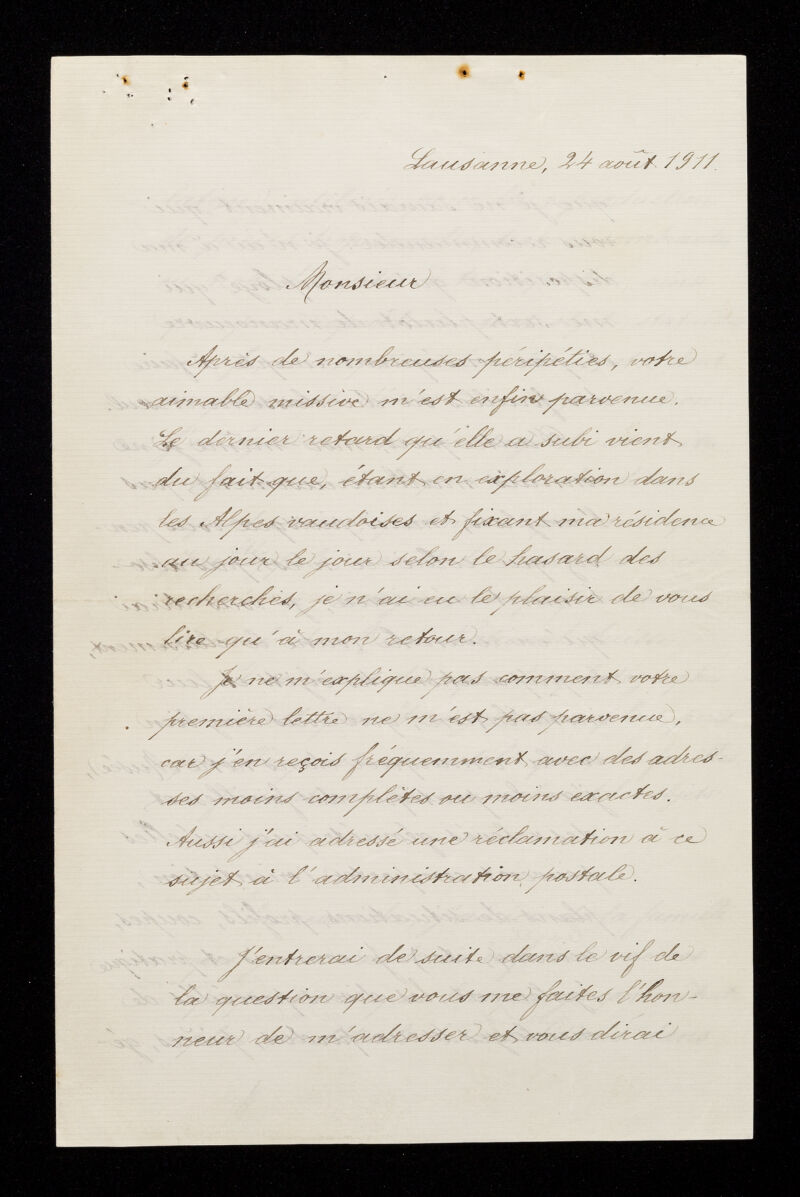 Lausanne, 24 août 1911.
Monsieur
Après de nombreuses péripéties, votre
aimable missive m'est enfin parvenue.
Le dernier retard qu'elle a subi vient
du fait que, étant en exploration dans
les Alpes vaudoises et fixant ma résidence
au jour le jour selon le hasard des
recherches, je n'ai eu le plaisir de vous
lire qu'à mon retour.
Je ne m'explique pas comment votre
première lettre ne m'est pas parvenue,
car j'en reçois fréquemment avec des adres-
ses moins complètes ou moins exactes.
Aussi j'ai adressé une réclamation à ce
sujet à l'administration postale.
J'entrerai de suite dans le vif de
la question que vous me faites l'hon-
neur de m'adresser et vous dirai